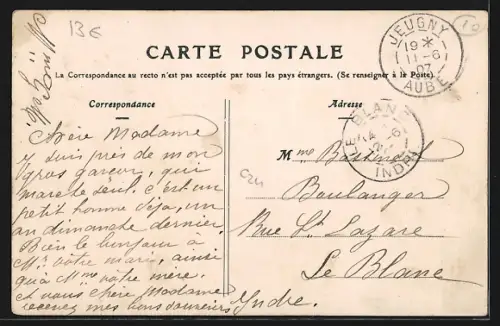 13€
CARTE POSTALE
La Correspondance au recto n'est pas acceptée par tous les pays étrangers. (Se renseigner à la Poste).
JEUGNY
19 *
11-6
07
AUBE
Correspondance
Chère Madame
Je suis près de mon
gros garçon, qui
marche seul. c'est un
petit homme déja, un
an dimanche dernier.
Bien le bonjour à
Mr votre mari, ainsi
qu'à Mme votre mère.
et vous chère Madame
recevez mes bons
Adresse
LE BLANC
-6
INDRE
Mme
Boulanger
Rue St Lazare
Le Blanc
Indre.